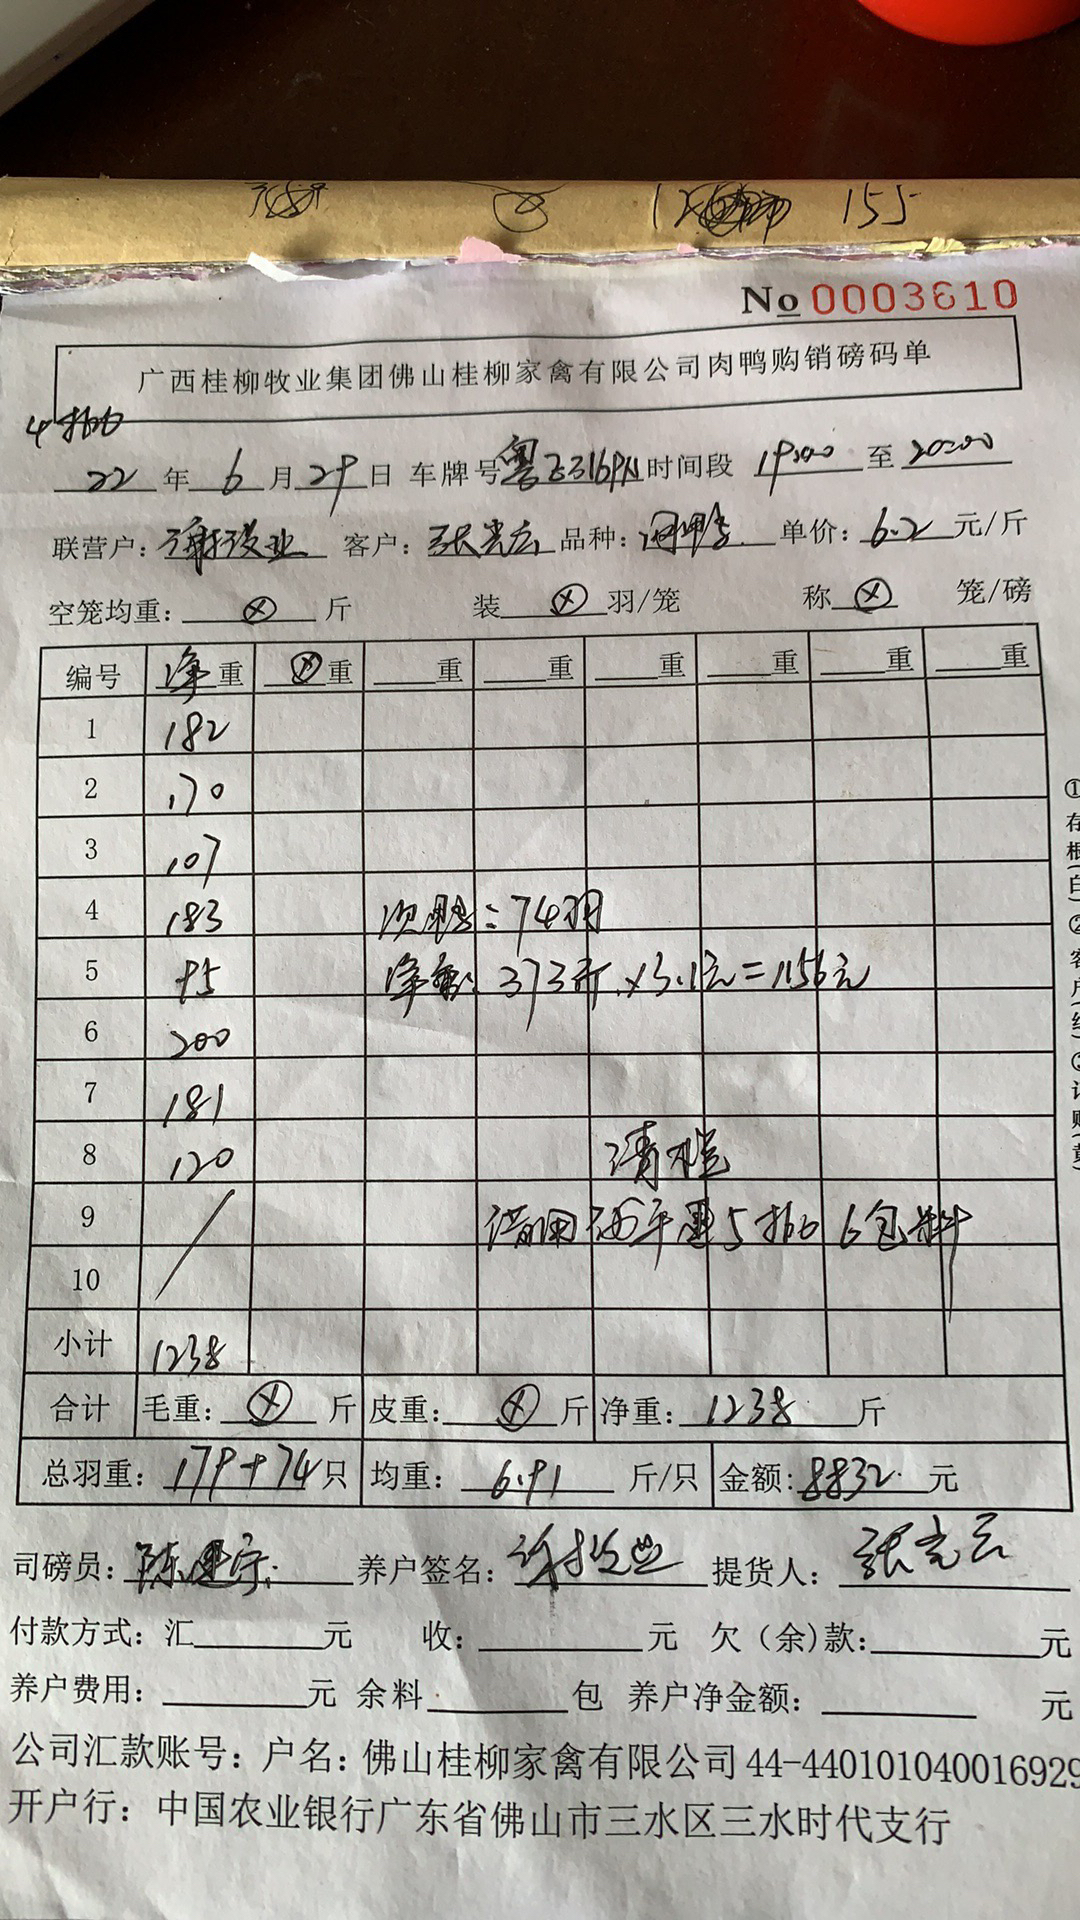 155
No 0003610
广西桂柳牧业集团佛山桂柳家禽有限公司肉鸭购销磅码单
4批
22年6月29日 车牌号粤 时间段 19:00 至 20:00
联营户: 客户: 张光云 品种: 单价: 6.2 元/斤
空笼均重: ⊗ 斤 装 ⊗ 羽/笼 称 ⊗ 笼/磅
编号 净重 ⊗重 重 重 重 重 重 重
1 182
2 170
3 107
4 183 次鸭: 74羽
5 95 净重: 373斤×3.1元=1156元
6 200
7 181
8 120 清栏
9 借用 5批 6包料
10
小计 1238
合计 毛重: ⊗ 斤 皮重: ⊗ 斤 净重: 1238 斤
总羽重: 179+74 只 均重: 6.91 斤/只 金额: 8832 元
司磅员: 陈建宗 养户签名: 提货人: 张光云
付款方式: 汇 元 收: 元 欠(余)款: 元
养户费用: 元 余料 包 养户净金额: 元
公司汇款账号: 户名: 佛山桂柳家禽有限公司 44-440101040016929
开户行: 中国农业银行广东省佛山市三水区三水时代支行
①存根(白)②客户(红)③记账(黄)